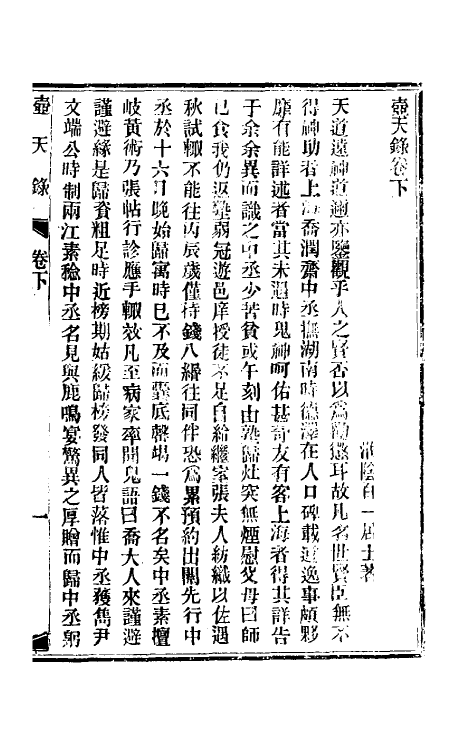 壺天錄卷下
淮陰百一居士著
天道遠神道邇亦鑒觀乎人之賢否以爲勸懲耳故凡名世賢臣無不
得神助者上海喬潤齋中丞撫湖南時德澤在人口碑載道逸事頗夥
靡有能詳述者當其未遇時鬼神呵佑甚奇友有客上海者得其詳告
于余余異而識之中丞少苦貧或午刻由塾歸灶突無煙慰父母曰師
已食我仍返塾弱冠遊邑庠授徒不足自給繼家張夫人紡織以佐遇
秋試輒不能往丙辰歲僅待錢八緡往同伴恐爲累預約出闈先行中
丞於十六日晚始歸寓時已不及而囊底罄塲一錢不名矣中丞素檀
岐黃術乃張帖行診應手輒效凡至病家率聞鬼語曰喬大人來謹避
謹避緣是歸資粗足時近榜期姑緩歸榜發同人皆落惟中丞獲雋尹
文端公時制兩江素稔中丞名見與鹿鳴宴驚異之厚贈而歸中丞躬
壺天錄
卷下
一